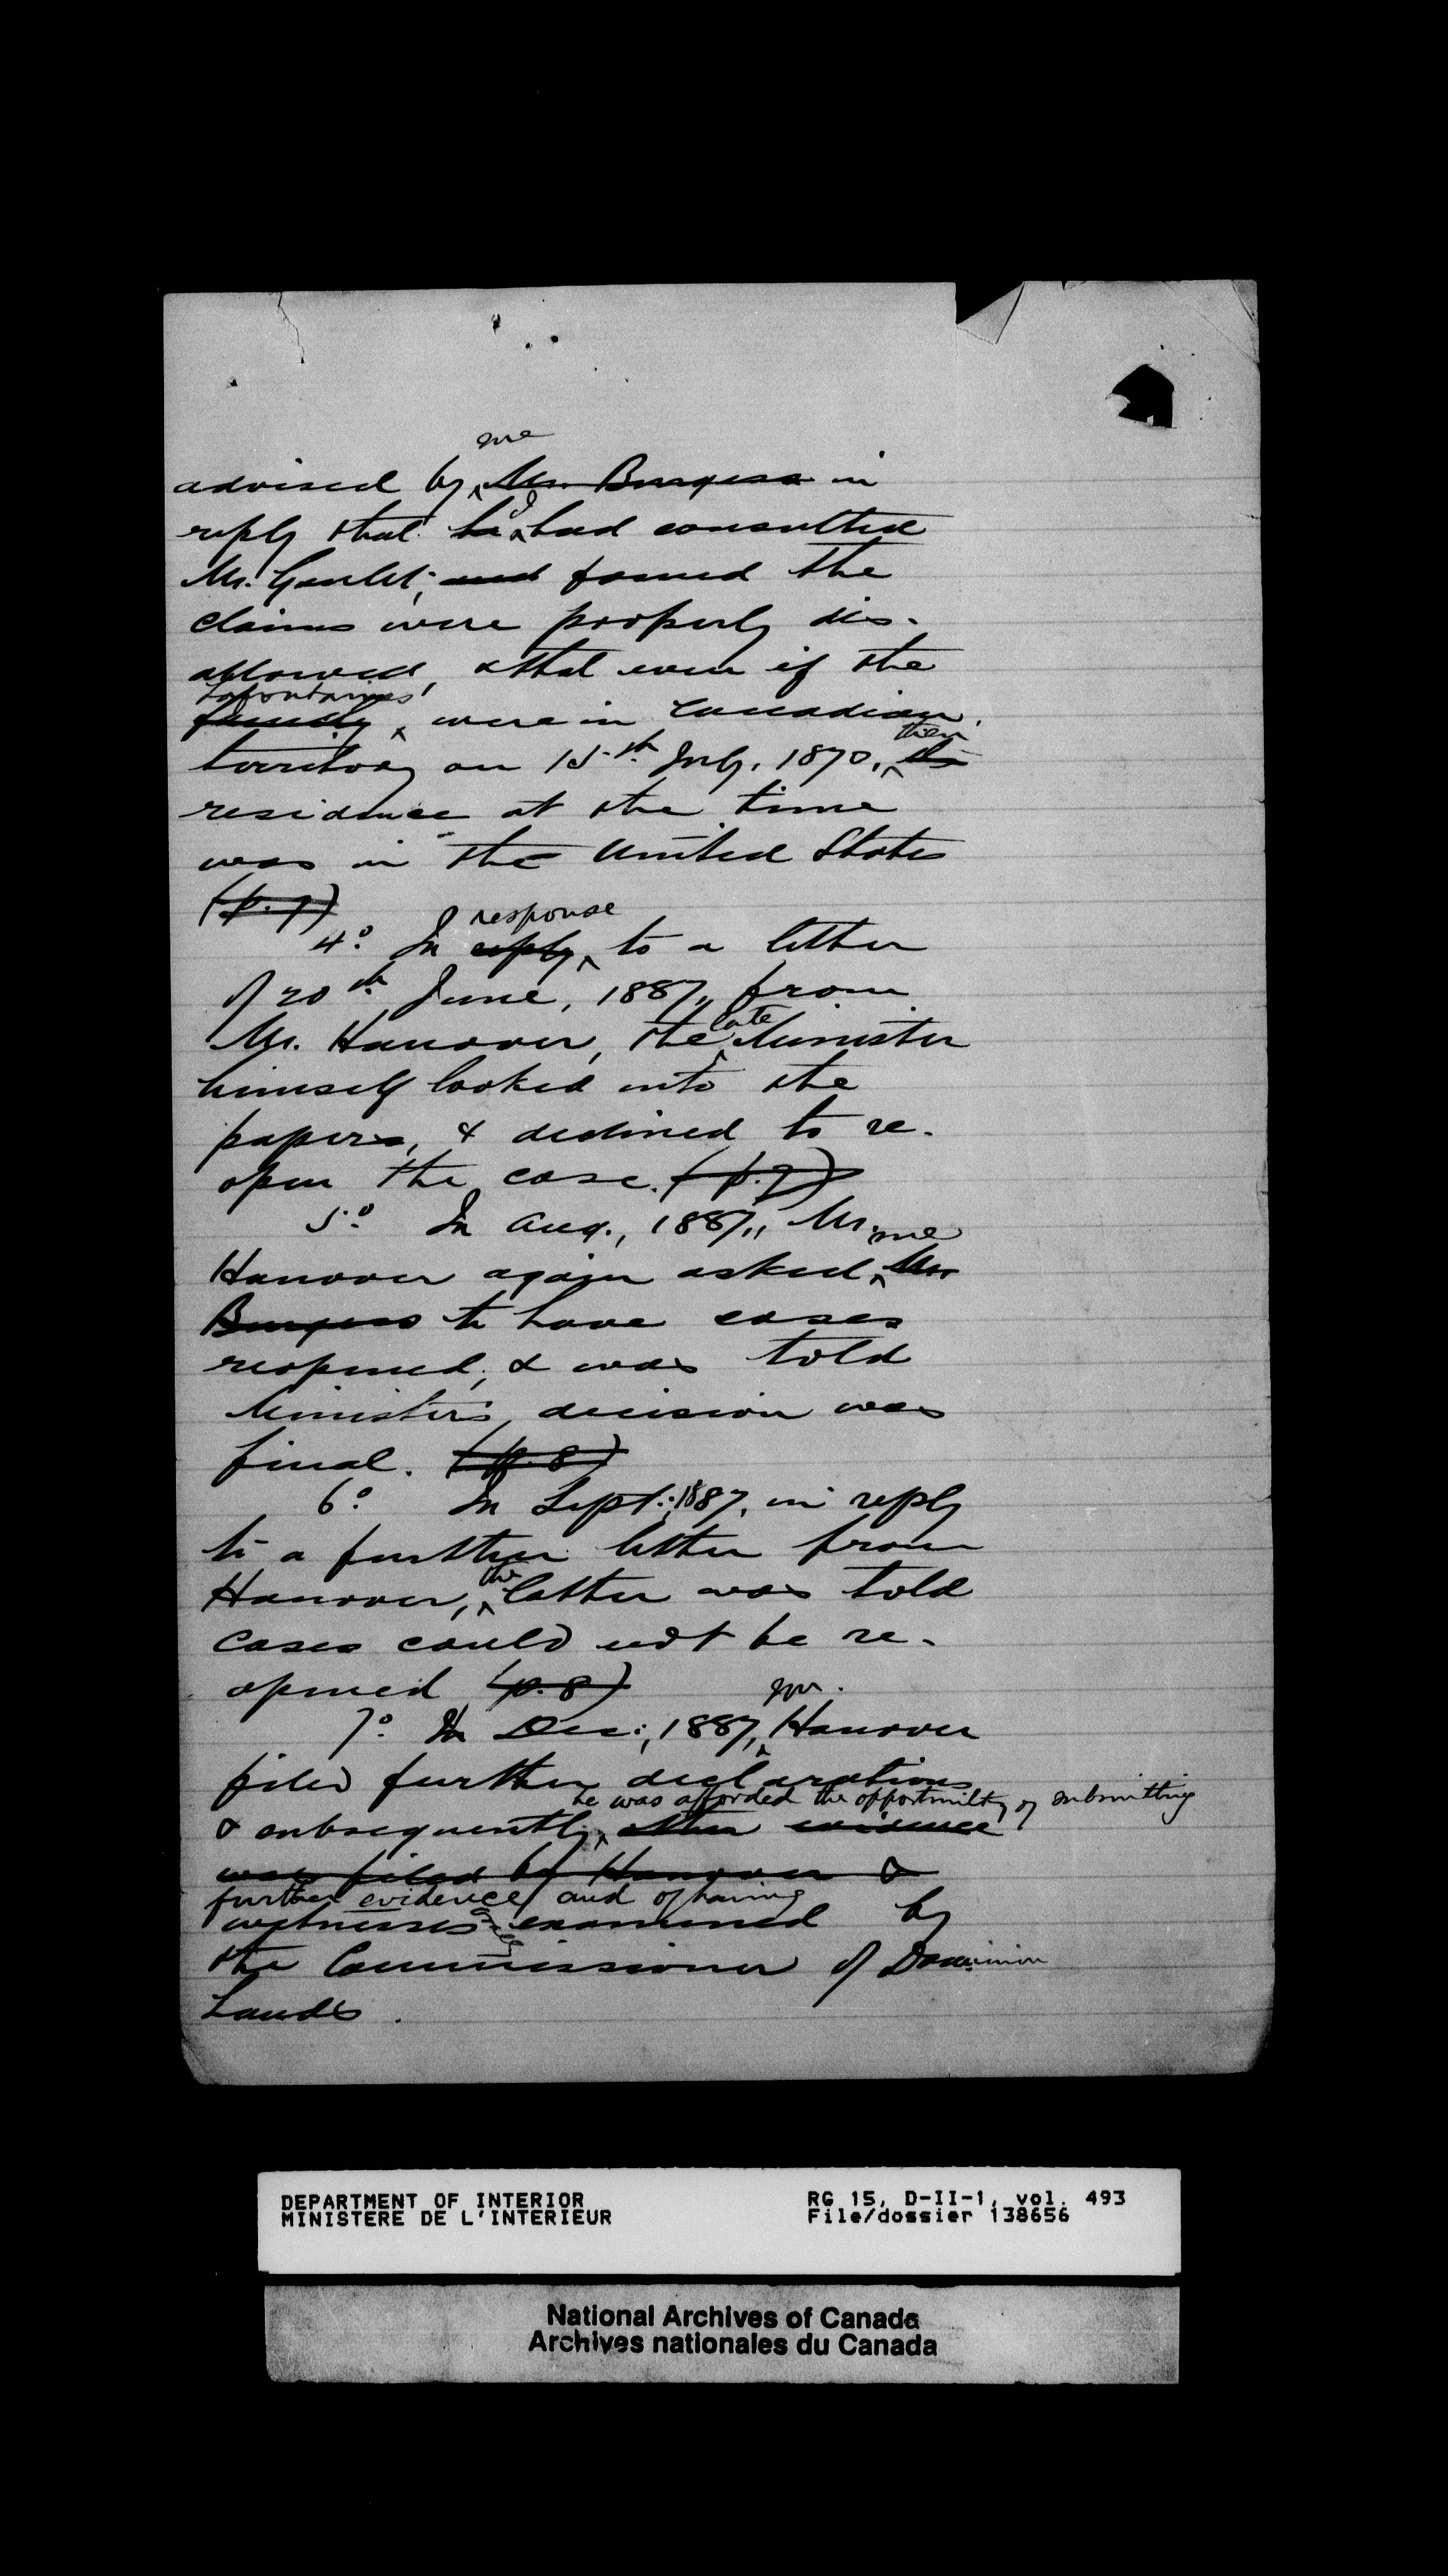 me
advised by Mr. Burgess in
I
reply that he had consulted
Mr. Goulet; and found the
claims were properly dis-
allowed, & that even if the
Lafontaines'
family, were in Canadian
their
territory on 15th July, 1870, the
residence at the time
was in the United States
(p. 7)
response
4° In reply to a letter
of 20th June, 1887, from
late
Mr. Hanover, the Minister
himself looked into the
papers, & declined to re-
open the case. (p. 7)
5° In Aug., 1887, Mr.
me
Hanover again asked Mr.
Burgess to have cases
reopened, & was told
Minister's decision was
final. (p. 8)
6° In Sept: 1887, in reply
to a further letter from
the
Hanover, latter was told
cases could not be re-
opened (p. 8)
Mr.
7° In Dec:, 1887, Hanover
filed further declarations
he was afforded the opportunity of submitting
& subsequently other evidence
was filed by Hanover &
further evidence and of having
witnesses examined by
the Commissioner of Dominion
Lands.
DEPARTMENT OF INTERIOR
MINISTERE DE L'INTERIEUR
RG 15, D-II-1, vol. 493
File/dossier 138656
National Archives of Canada
Archives nationales du Canada